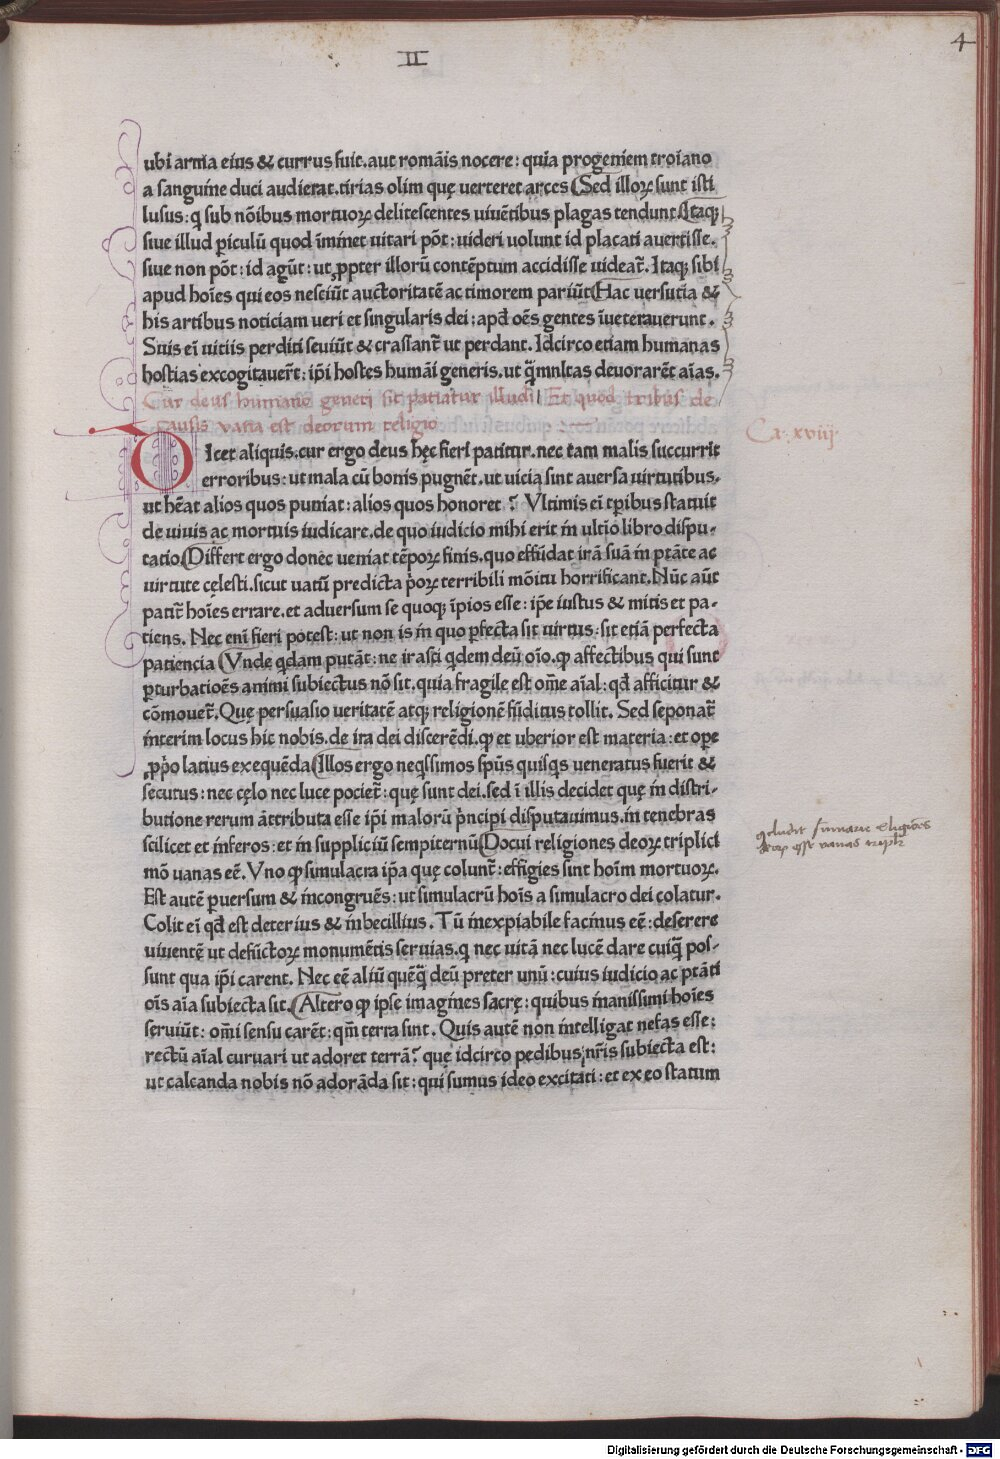 II
4
ubi arma eius & currus fuit. aut romāis nocere: quia progeniem troiano
a sanguine duci audierat. tirias olim quę uerteret arces Sed illoꝝ sunt isti
lusus: q sub nōibus mortuoꝝ delitescentes uiuētibus plagas tendunt Itaqꝫ
siue illud ꝑiculū quod īminet uitari pōt: uideri uolunt id placati auertisse.
siue non pōt: id agūt: ut ꝓpter illorū contēptum accidisse uideat̃. Itaqꝫ sibi
apud hoīes qui eos nesciūt auctoritatē ac timorem pariūt Hac uersutia &
his artibus noticiam ueri et singularis dei: apd̄ oēs gentes īueterauerunt.
Suis eī uitiis perditi seuiūt & crassant̃ ut perdant. Idcirco etiam humanas
hostias excogitauer̃t: ip̄i hostes humāi generis. ut q̄multas deuorarēt aīas.
Cur deus humano generi sic patiatur illudi Et quod tribus de
causis vana est deorum religio
Ca. xviij.
DIcet aliquis. cur ergo deus hęc fieri patitur. nec tam malis succurrit
erroribus: ut mala cū bonis pugnēt. ut uicia sint auersa uirtutibus.
ut hēat alios quos puniat: alios quos honoret? Vltimis eī tp̄ibus statuit
de uiuis ac mortuis iudicare. de quo iudicio mihi erit in ultīo libro dispu-
tatio Differt ergo donec ueniat tēpoꝝ finis. quo effūdat irā suā in ptāte ac
uirtute cęlesti. sicut uatū predicta p̄oꝝ terribili mōitu horrificant. Nūc aūt
patit̃ hoīes errare. et aduersum se quoqꝫ īpios esse: ip̄e iustus & mitis et pa-
tiens. Nec enī fieri potest: ut non is in quo ꝑfecta sit uirtus: sit etiā perfecta
patiencia Vnde qdam putāt: ne irasci qdem deū oīo. qꝫ affectibus qui sunt
ꝑturbatioēs animi subiectus nō sit. quia fragile est om̄e aīal: qd̄ afficitur &
cōmouet̃. Quę persuasio ueritatē atqꝫ religionē fūditus tollit. Sed seponat̃
interim locus hic nobis. de ira dei discerēdi. qꝫ et uberior est materia: et opē
ꝓp̄o latius exequēda Illos ergo neqssimos sp̄us quisqs ueneratus fuerit &
secutus: nec cęlo nec luce pociet̃: quę sunt dei. sed ī illis decidet quę in distri-
butione rerum āttributa esse ip̄i malorū p̄ncipi disputauimus. in tenebras
scilicet et inferos: et in suppliciū sempiternū Docui religiones deoꝝ triplici
mō uanas eē. Vno qꝫ simulacra ip̄a quę colunt̃: effigies sint hoīm mortuoꝝ.
Est autē ꝑuersum & incongruēs: ut simulacrū hoīs a simulacro dei colatur.
Colit eī qd̄ est deterius & inbecillius. Tū inexpiabile facinus eē: deserere
uiuentē ut defūctoꝝ monumētis seruias. q nec uitā nec lucē dare cuiq̄ pos-
sunt qua ip̄i carent. Nec eē aliū quēq̄ deū preter unū: cuius iudicio ac ptāti
oīs aīa subiecta sit. Altero qꝫ ipse imagines sacrę: quibus inanissimi hoīes
seruiūt: om̄i sensu carēt: qm̄ terra sint. Quis autē non intelligat nefas esse:
rectū aīal curuari ut adoret terrā? quę idcirco pedibus nr̄is subiecta est:
ut calcanda nobis nō adorāda sit: qui sumus ideo excitati: et ex eo statum
Digitalisierung gefördert durch die Deutsche Forschungsgemeinschaft - DFG